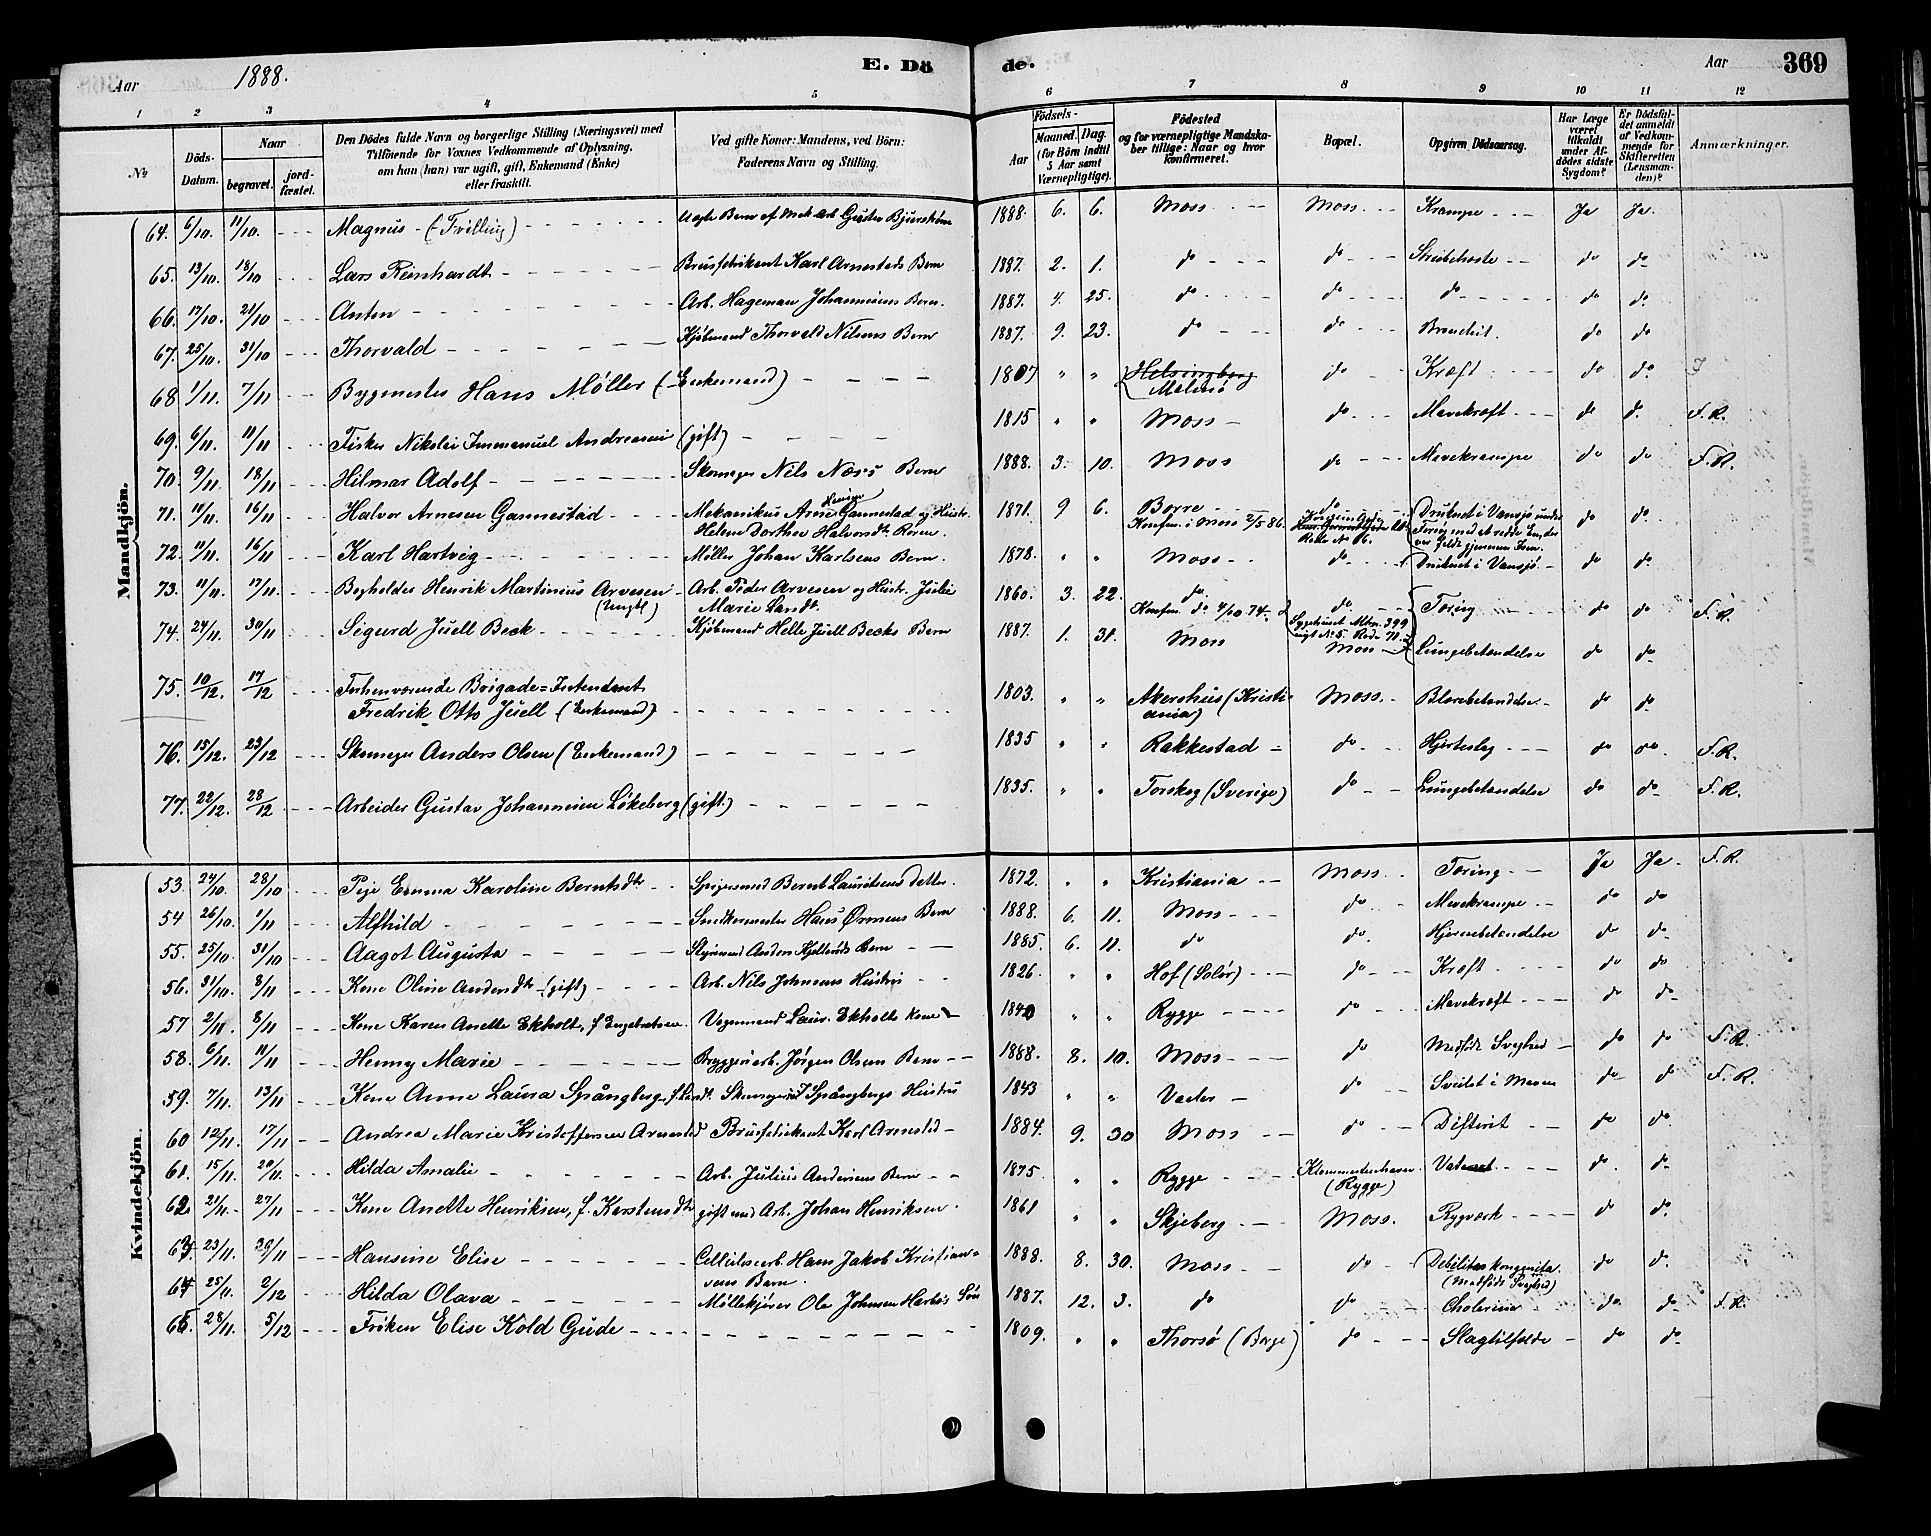 Aar 1888. E. Dö de. Aar 369
1 2 3 4 5 6 7 8 9 10 11 12
No Döds-Datum. Naar begravet. jordfæstet. Den Dödes fulde Navn og borgerlige Stilling (Næringsvei) med Tilföiende for Voxnes Vedkommende af Oplysning, om han (hun) var ugift, gift, Enkemand (Enke) eller fraskilt. Ved gifte Koner: Mandens, ved Börn: Faderens Navn og Stilling. Födsels- Aar Maaned. Dag. (for Börn indtil 5 Aar samt Værnepligtige). Födested og for værnepligtige Mandskaber tillige: Naar og hvor konfirmeret. Bopæl. Opgiven Dödsaarsag. Har Læge været tilkaldt under Afdödes sidste Sygdom? Er Dödsfaldet anmeldt af Vedkommende for Skifteretten (Lensmanden)? Anmærkninger.
Mandkjön.
64. 6/10. 11/10. Magnus - (Tvilling) Uægte Barn af Mek. Arb. Gustav 1888. 6. 6. Moss Moss Krampe Ja Ja.
65. 13/10. 18/10 Lars Reinhardt Brusfabrikant Karl Arnesteds Barn 1887. 2. 1. do do Strubehoste do do
66. 17/10. 21/10 Anton Arb. Hageman Johannesens Barn. 1887. 4. 25. do do do do do
67. 25/10. 31/10 Thorvald Kjöbmand Thorvald Nilsens Barn 1887. 9. 23. do do Bronchit. do do
68 1/11. 7/11 Bygmester Hans Møller (Enkemand) 1807 " " Helsingborg do Kræft do do
69. 6/11. 11/11 Fisker Nikolai Immanuel Andreasen (gift) 1815 " " Moss do Mavekræft do do F. R.
70. 9/11. 18/11 Hilmar Adolf Skomager Nils Næss Barn 1888. 3. 10. Moss do Mavekrampe do do F. R.
71. 11/11. 16/11 Halvor Arnesen Gannestad Mekanikus Arne Gannestad og Hustr. Helene Dorthea Halvorsdt. Barn. 1871. 9 6. Borre Konfirm. i Moss 2/5 86. do Druknet i Vansjø under do do
72. 11/11. 16/11 Karl Hartvig Møller Johan Karlsens Barn. 1878. " " Moss do Druknet i Vansjø do do
73. 11/11. 17/11. Bogholder Henrik Martinius Arvesen (Ungk) Arb. Peder Arvesen og Hustr. Julie Marie Landt. 1860. 3. 22. do Konfirm. do 4/10 74 do Tæring do do F. R.
74. 24/11. 30/11 Sigurd Juell Beck Kjöbmand Helle Juell Becks Barn 1887. 1. 31. Moss Moss Lungebetændelse do do
75. 10/12. 17/12 Forhenværende Brigade=Intendant Fredrik Otto Juell (Enkemand) 1803. " " Akershus (Kristiania) Moss. Blærebetændelse. do do
76. 15/12. 23/12 Skomager Anders Olsen (Enkemand) 1835 " " Rakkestad do Hjerteslag do do F. R.
77. 22/12. 28/12 Arbeider Gustav Johannesen Løkeberg (gift.) 1835. " " Torskog (Sverige) do Lungebetændelse do do F. R.
Kvindekjön.
53. 24/10. 28/10 Pige Emma Karoline Berntsdtr Bernt Lauritsens Datter. 1872. " " Kristiania Moss. Tæring Ja Ja F. R.
54 26/10. 1/11 Alfhild Snedkermester Hans Barn 1888. 6. 11. Moss do Mavekrampe do do
55. 25/10. 31/10 Aagot Augusta Styrmand Anders Barn 1885. 6. 11. do do. Hjernebetændelse do do
56. 31/10. 8/11 Kone Oline Andersdtr (gift) Arb. Nils Johnsens Hustru 1826. " " Hof (Solør) do Kræft do do
57 2/11. 8/11 Kone Karen Anette Ekholt, f. Engebretsen. Vognmand Laur. Ekholts Kone 1840 " " Rygge do Mavekræft do do
58. 6/11. 11/11 Henny Marie Bryggeriarb. Jørgen Olsens Barn 1888. 8. 10. Moss do Medfødt Svaghed do do F. R.
59. 7/11. 13/11 Kone Anne Laura Spångberg, f. Spångbergs Hustru 1843 " " Vaaler do do do F. R.
60 12/11. 17/11 Andrea Marie Kristoffersen Arnestad Brusfabrikant Karl Arnestad 1884. 9. 30 Moss do Difterit do do
61. 15/11. 20/11. Hilda Amalie Arb. Julius Andersens Barn 1875 " " Rygge (Rygge) do. do
62 21/11. 27/11 Kone Anette Henriksen, f. Karstensdtr gift med Arb. Johan Henriksen. 1861 " " Skjeberg Moss. Rygværk do do
63. 23/11. 30/11 Hansine Elise Cellulosearb. Hans Jakob Kristiansens Barn. 1888. 8. 30. Moss do Debilitas kongenita. (Medfødt Svaghed) do do
64 25/11. 2/12 Hilda Olava Møllekjører Ole Johnsen 1887. 12. 3. do do Cholerine do do F. R.
65 28/11. 5/12 Frøken Elise Kold Gude 1809. " " Thorsø (Borge) do Slagtilfælde do do